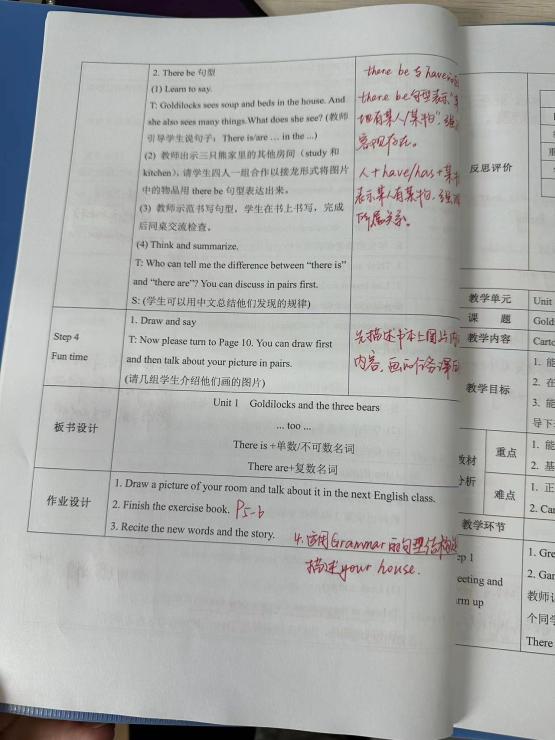 2. There be 句型
(1) Learn to say.
T: Goldilocks sees soup and beds in the house. And
she also sees many things. What does she see? (教师
引导学生说句子：There is/are … in the ...)
(2) 教师出示三只熊家里的其他房间（study 和
kitchen），请学生四人一组合作以接龙形式将图片
中的物品用 there be 句型表达出来。
(3) 教师示范书写句型，学生在书上书写，完成
后同桌交流检查。
(4) Think and summarize.
T: Who can tell me the difference between “there is”
and “there are”? You can discuss in pairs first.
S: (学生可以用中文总结他们发现的规律)
there be 与 have
there be句型表示“
地有某人/某物”，强
客观存在。
人+have/has+某
表示某人有某物，强
所属关系。
Step 4
Fun time
1. Draw and say
T: Now please turn to Page 10. You can draw first
and then talk about your picture in pairs.
(请几组学生介绍他们画的图片)
先描述书本上图片
内容，画
板书设计
Unit 1 Goldilocks and the three bears
... too ...
There is +单数/不可数名词
There are+复数名词
作业设计
1. Draw a picture of your room and talk about it in the next English class.
2. Finish the exercise book. P5-6
3. Recite the new words and the story.
4. 运用Grammar的句型结构
描述your house.
反思评价
重
教学单元
Unit
课 题
Gold
教学内容
Carto
教学目标
1. 能
2. 在
3. 能
导下
教材
分析
重点
1. 能
2. 基
难点
1. 正
2. Car
教学环节
ep 1
eeting and
rm up
1. Gre
2. Gar
教师
个同学
There